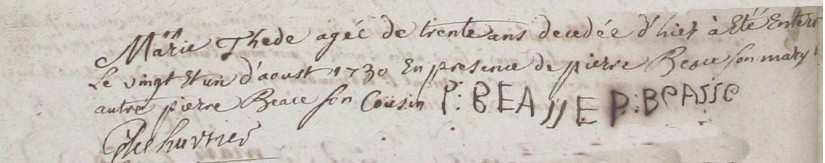 Marie Thede agée de trente ans decedée d'hier à Eté Enterr
Le vingt et un d'aoust 1730 En presence de pierre Beace son mary
autre pierre Beace son Cousin P: BEASSE P: BEASSE